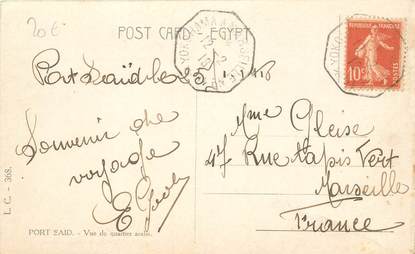 20€
POST CARD EGYPT
YOKOHAMA A MARSEILLE
REPUBLIQUE FRANÇAISE
10c
POSTES
YOKO
Port Saïd le 25
Souvenir de
voyage
Mme Gleise
47 Rue tapis Vert
Marseille
France
L. C. - 368.
PORT SAID. - Vue du quartier arabe.